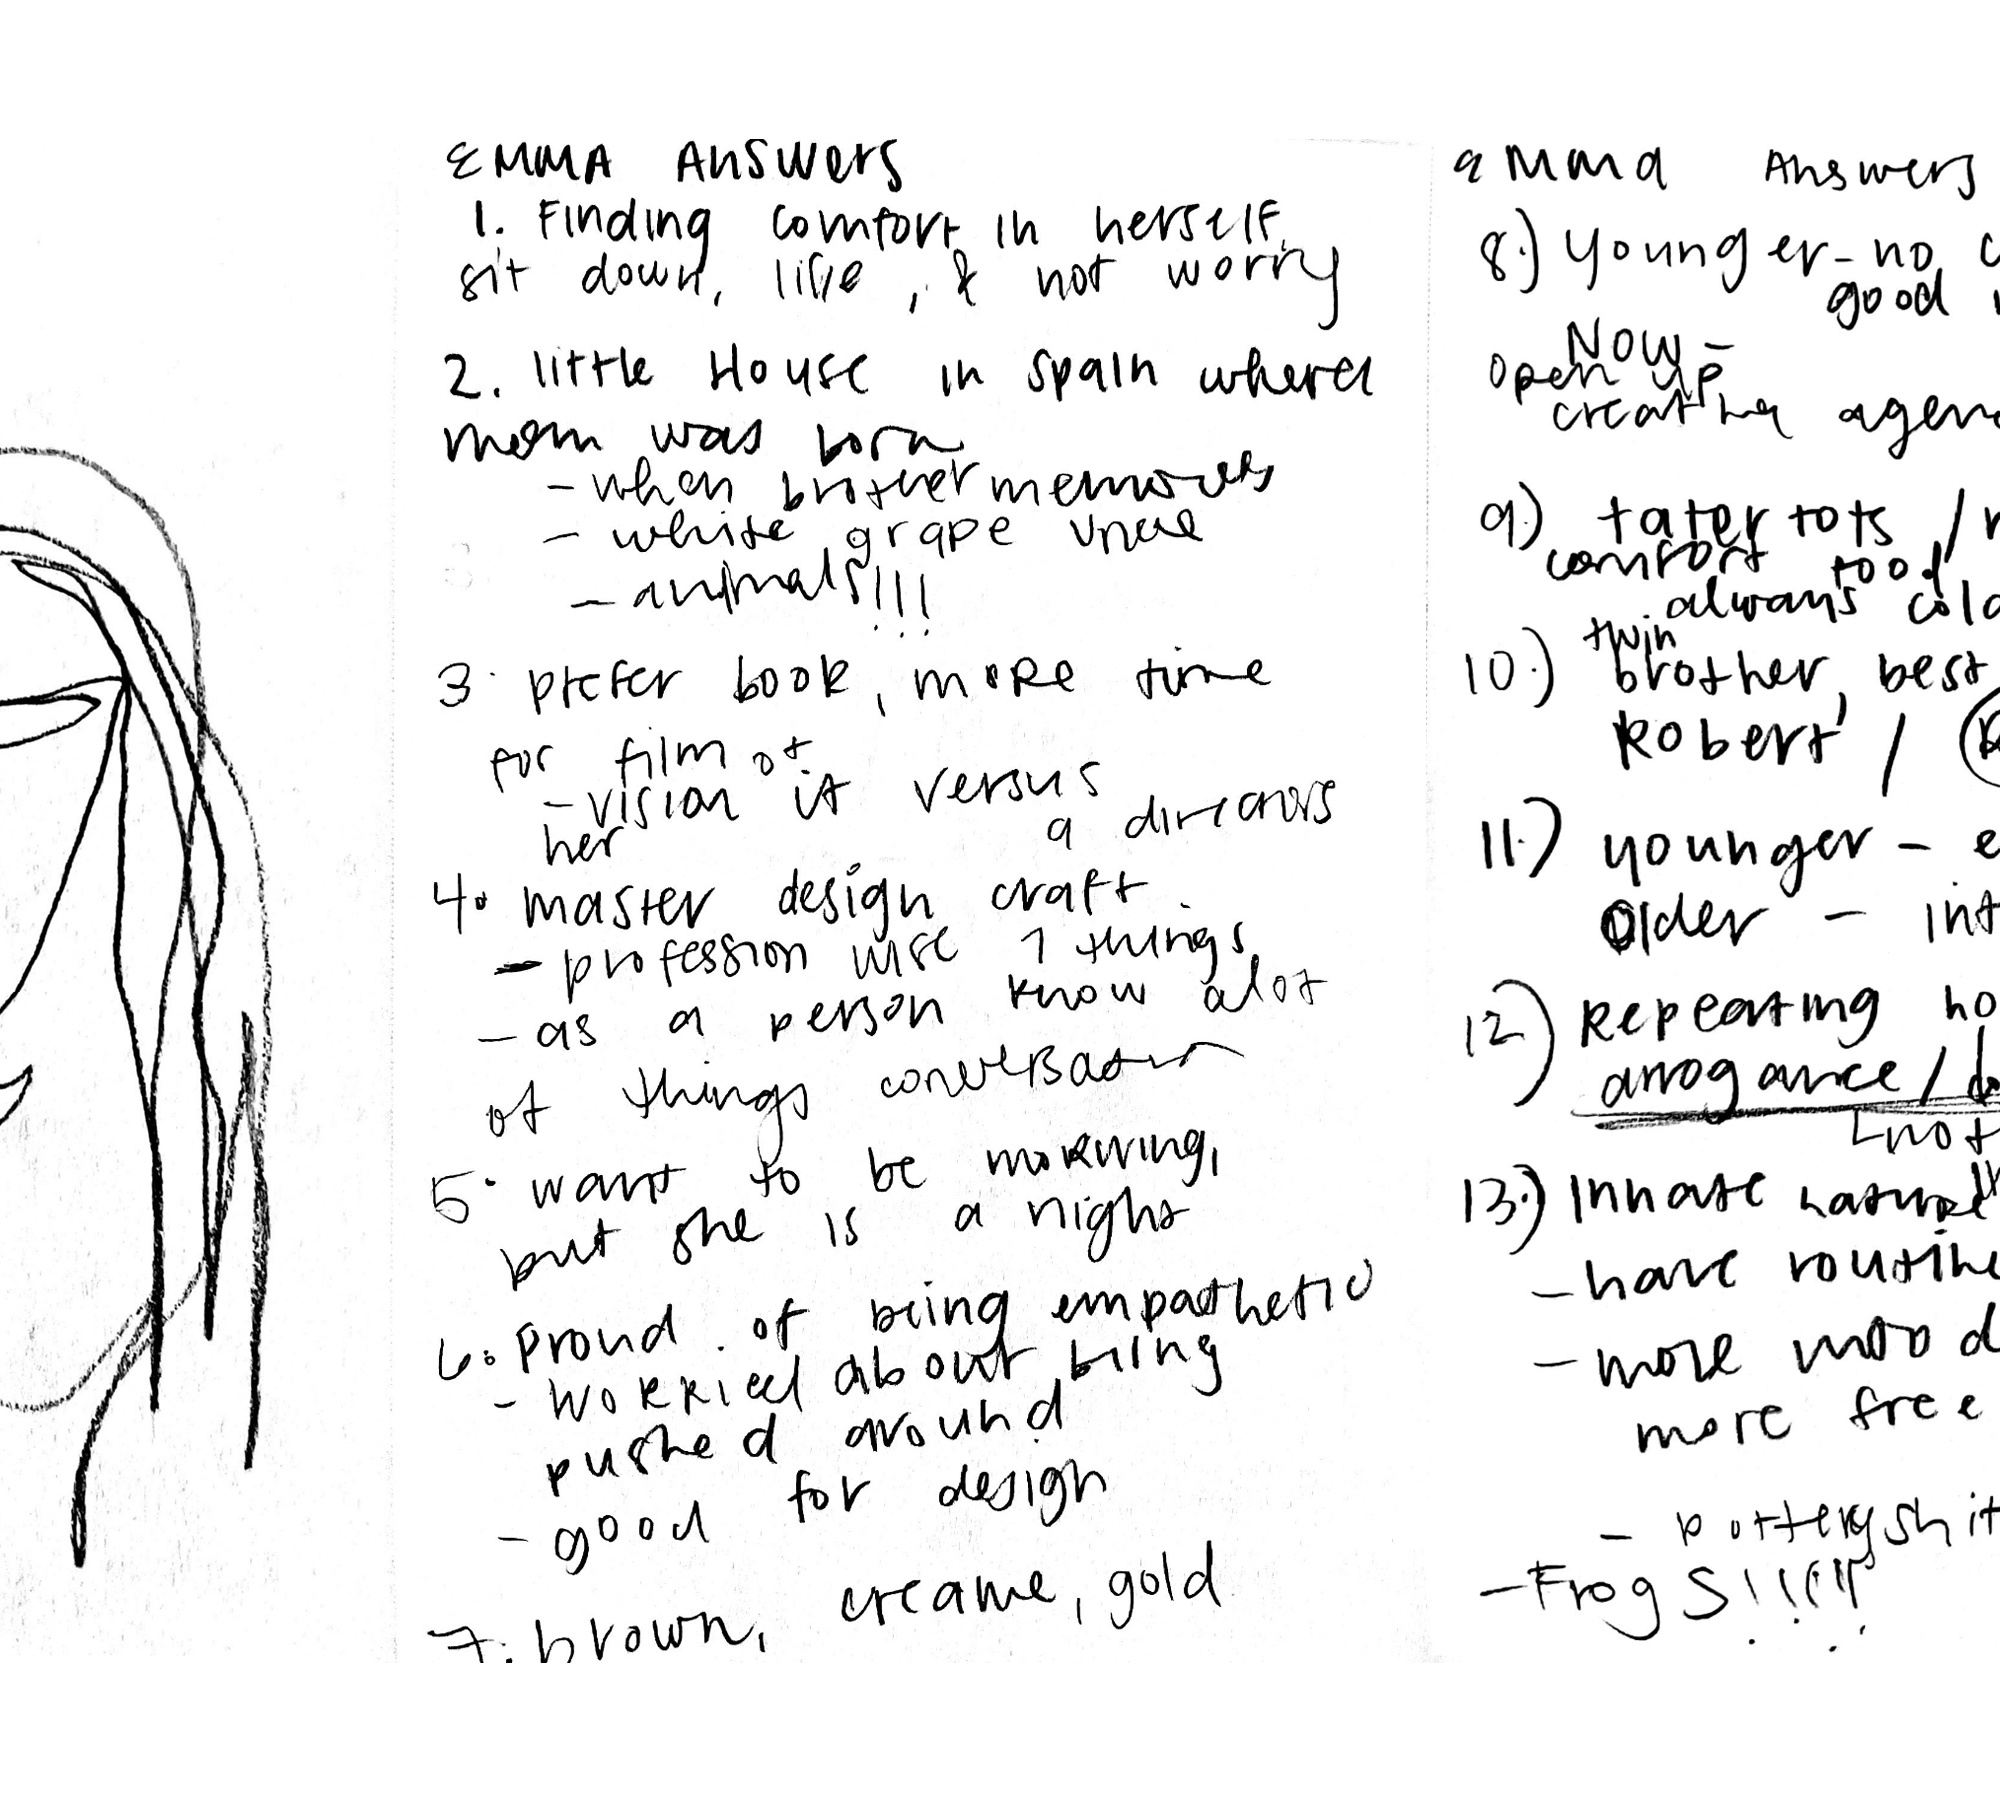 EMMA Answers
1. Finding comfort in herself,
sit down, live, & not worry
2. little House in Spain where
mom was born
- when brother memories
- white grape
- animals!!!
3. prefer book, more time
for film of
- vision it versus
her a directors
4. master design craft
- profession wise 1 things
- as a person know alot
of things conversation
5. want to be morning,
but she is a night
6. Proud of being empathetic
- worried about being
pushed around
- good for design
7. brown, creame, gold
Emma Answers
8.) younger - no
good
Now -
open up
creative
9.) tater tots /
comfort food
always cold
10.) twin
brother, best
Robert /
11.) younger -
older -
12.) Repeating
arrogance /
not
13.) Innate nature
- have routine
- more mood
more free
- pottery shit
- Frogs!!!!!